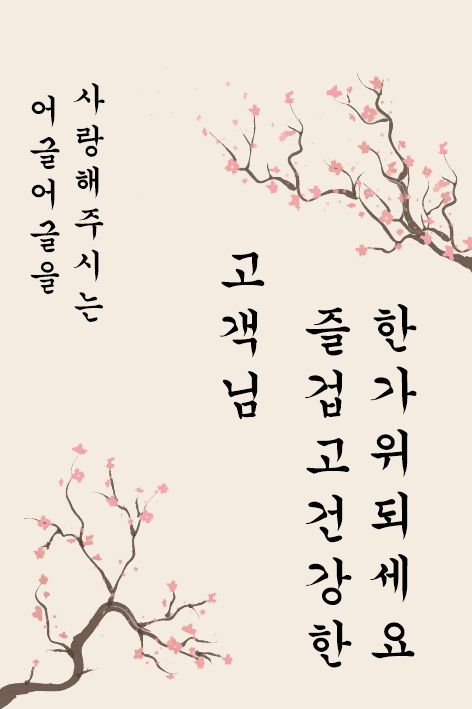 어글어글을
사랑해주시는
고객님
즐겁고건강한
한가위되세요